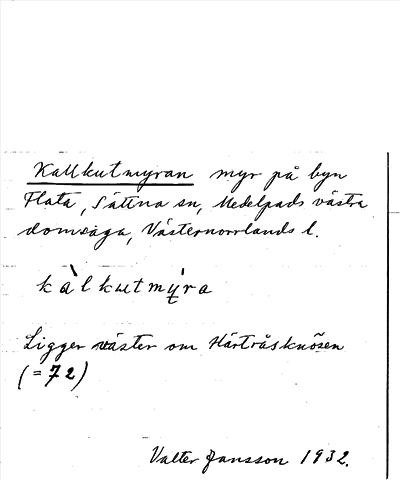 Kallkutmyran myr på byn
Flata, Sättna sn, Medelpads västra
domsaga, Västernorrlands l.
kàlkutmỳ̨ra
Ligger väster om Hårtråsknösen
(= 72)
Valter Jansson 1932.